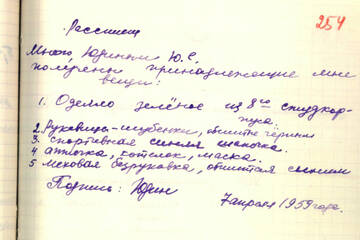 254
Расписка
Мною, Юдиным Ю. Е.
получены принадлежащие мне
вещи:
1. Одеяло зелёное из 8го
2. Рукавицы-шубенки, обшиты чёрным
3. спортивная синяя шапочка.
4 аптечка, котелок, маска.
5 меховая безрукавка, обшитая синим
Подпись: Юдин
7 апреля 1959 года.